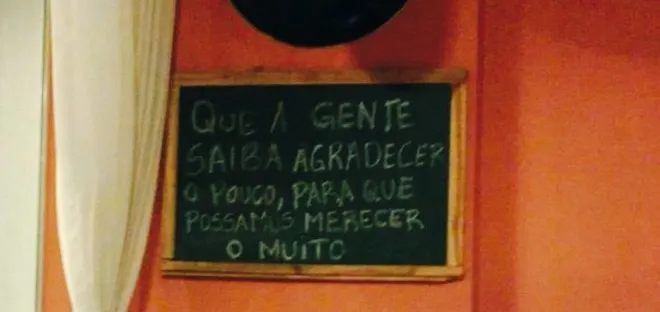 QUE A GENTE
SAIBA AGRADECER
O POUCO, PARA QUE
POSSAMOS MERECER
O MUITO